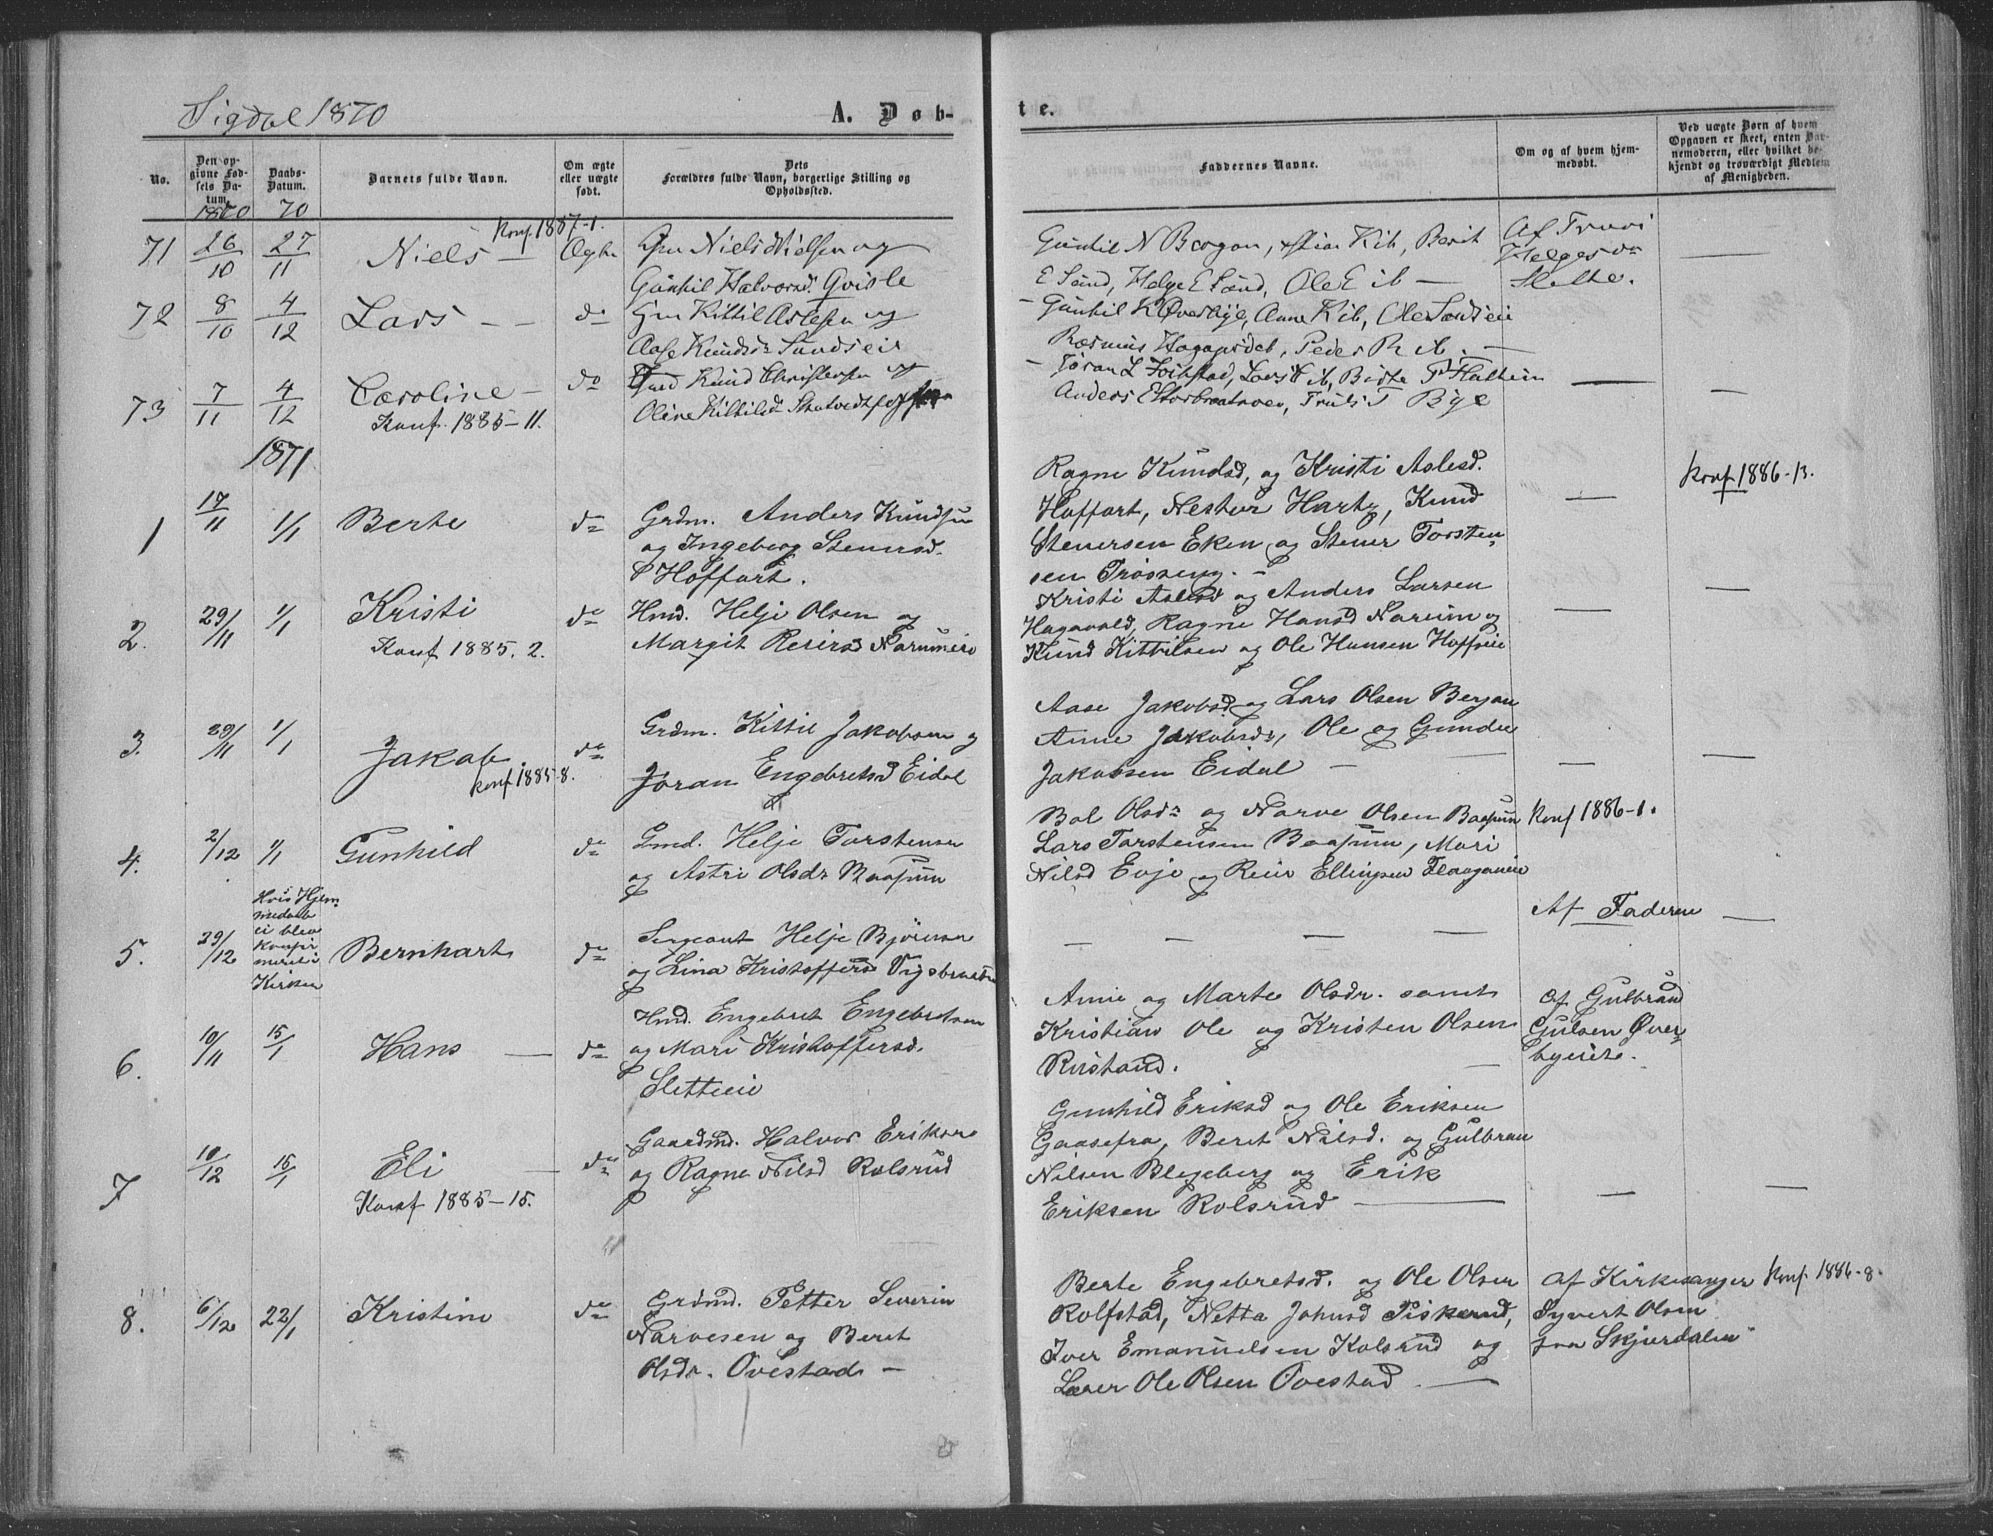 Sigdal 1870
A. Døb-
te.
No.
Den op-
givne Fød-
sels Da-
tum.
Daabs-
Datum.
Barnets fulde Navn.
Om ægte
eller uægte
født.
Dets
Forældres fulde Navn, borgerlige Stilling og
Opholdssted.
Faddernes Navne.
Om og af hvem hjem-
medøbt.
Ved uægte Børn af hvem
Opgaven er skeet, enten Bar-
nemoderen, eller hvilket be-
kjendt og troværdigt Medlem
af Menigheden.
1870
70
71
26/10
27/11
Niels
Konf. 1887-1.
Ægte
Niels Nielsen og
Gunhil Halvorsd. Qvisle
Gunhil N Bergan, Kib, Berit
E Sund, Helge E Sund, Ole E ib —
Af Truvi
Helgesdr
Slette.
72
8/10
4/12
Lars — —
do
Kittil Aslesen og
Aase Knudsdr Sundseie
Gunhil K Øverbye, Anne Kib, Ole Sundseie
Rasmus
Peder R ib. —
73
7/11
4/12
Caroline —
Konf. 1885-11.
do
Knud Christensen og
Oline Kittilsd
Jøran L Lofstad, Lars ib, Birte
Anders
Truls T Bye
1871
1
17/11
1/1
Berte
do
Grdm. Anders Knudsen
og Ingeborg Stenersd.
Hoffart.
Ragne Knudsd, og Kristi Aslesd.
Hoffart, Nestur Hart, Knud
Stenersen Eken og Stener Torsten-
sen Trøseng. —
Konf 1886-13.
2.
29/11
1/1
Kristi
Konf 1885. 2.
do
Hmd. Helje Olsen og
Margit Reiersd Narumeie
Kristi Aslesd og Anders Larsen
Hagavald, Ragne Hansd Narum og
Knud Kittilsen og Ole Hansen Hoffseie
3.
29/11
1/1
Jakob
Konf. 1885-8.
do
Grdm. Kittil Jakobsen og
Jøran Engebretsd Eidal
Aase Jakobsd og Lars Olsen Bergan
Anne Jakobsdr, Ole og Gunder
Jakobsen Eidal —
4.
2/12
1/1
Gunhild
do
Gmd. Helje Torstensen
og Astri Olsdr Baasum
Bol Olsdr og Narve Olsen Baasum
Lars Torstensen Baasum, Mari
Nilsd Evje og Reier Ellingsen Flaaganeie
Konf 1886-1.
5.
29/12
Hvis Hjem-
medaab
ei blev
Konfir-
meret i
Kirken
Bernhart
do
Sergeant Helje Bjørnsen
og Lina Kristoffersd
Af Faderen
6.
10/11
15/1
Hans —
do
Hmd. Engebret Engebretsen
og Mari Kristoffersd.
Sletteeie
Anne og Marte Olsdr. samt
Kristian Ole og Kristen Olsen
Rustand.
af Gulbrand
Gulsen Øver-
byeie.
7
10/12
15/1
Eli —
Konf 1885-15.
do
Gaardmd. Halvor Eriksen
og Ragne Nilsd Kolsrud
Gunhild Eriksd og Ole Eriksen
Gaasefra, Beret Nilsd. og Gulbran
Nilsen Blegeberg og Erik
Eriksen Kolsrud —
8.
6/12
22/1
Kristine
do
Grdmd. Petter Severin
Narvesen og Beret
Olsdr. Ovestad —
Berte Engebretsd. og Ole Olsen
Rolfstad, Netta Johnsd Piskerud,
Iver Emanuelsen Kolsrud og
Lærer Ole Olsen Ovestad —
af Kirkesanger
Syvert Olsen
fra Skjerdalen
Konf 1886-8.